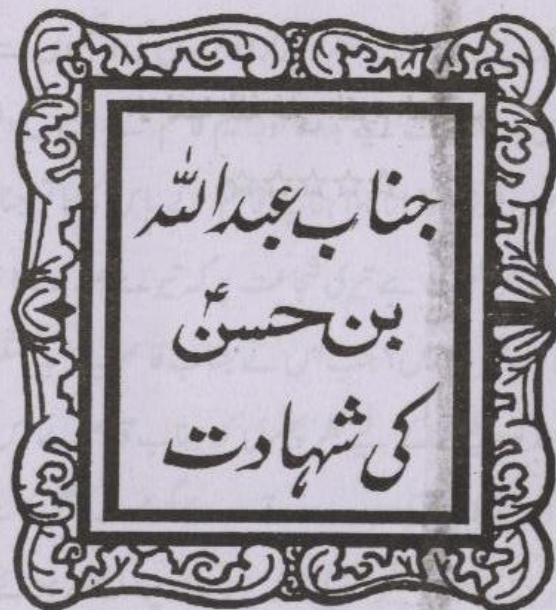 جناب عبداللہ
بن حسنؑ
کی شہادت